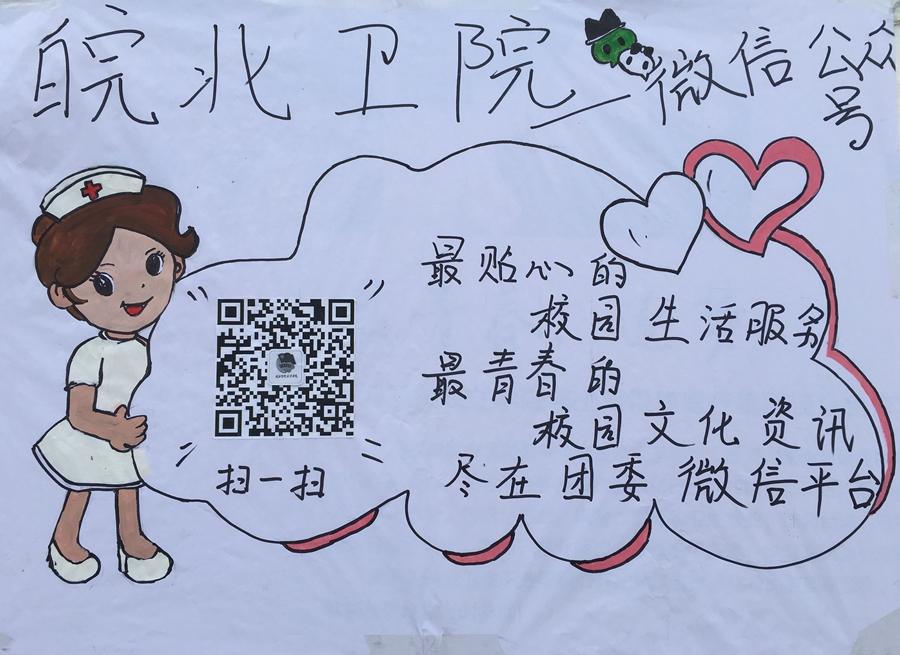 皖北卫院—微信公众
号
最贴心的
校园生活服务
最青春的
校园文化资讯
尽在团委微信平台
扫一扫